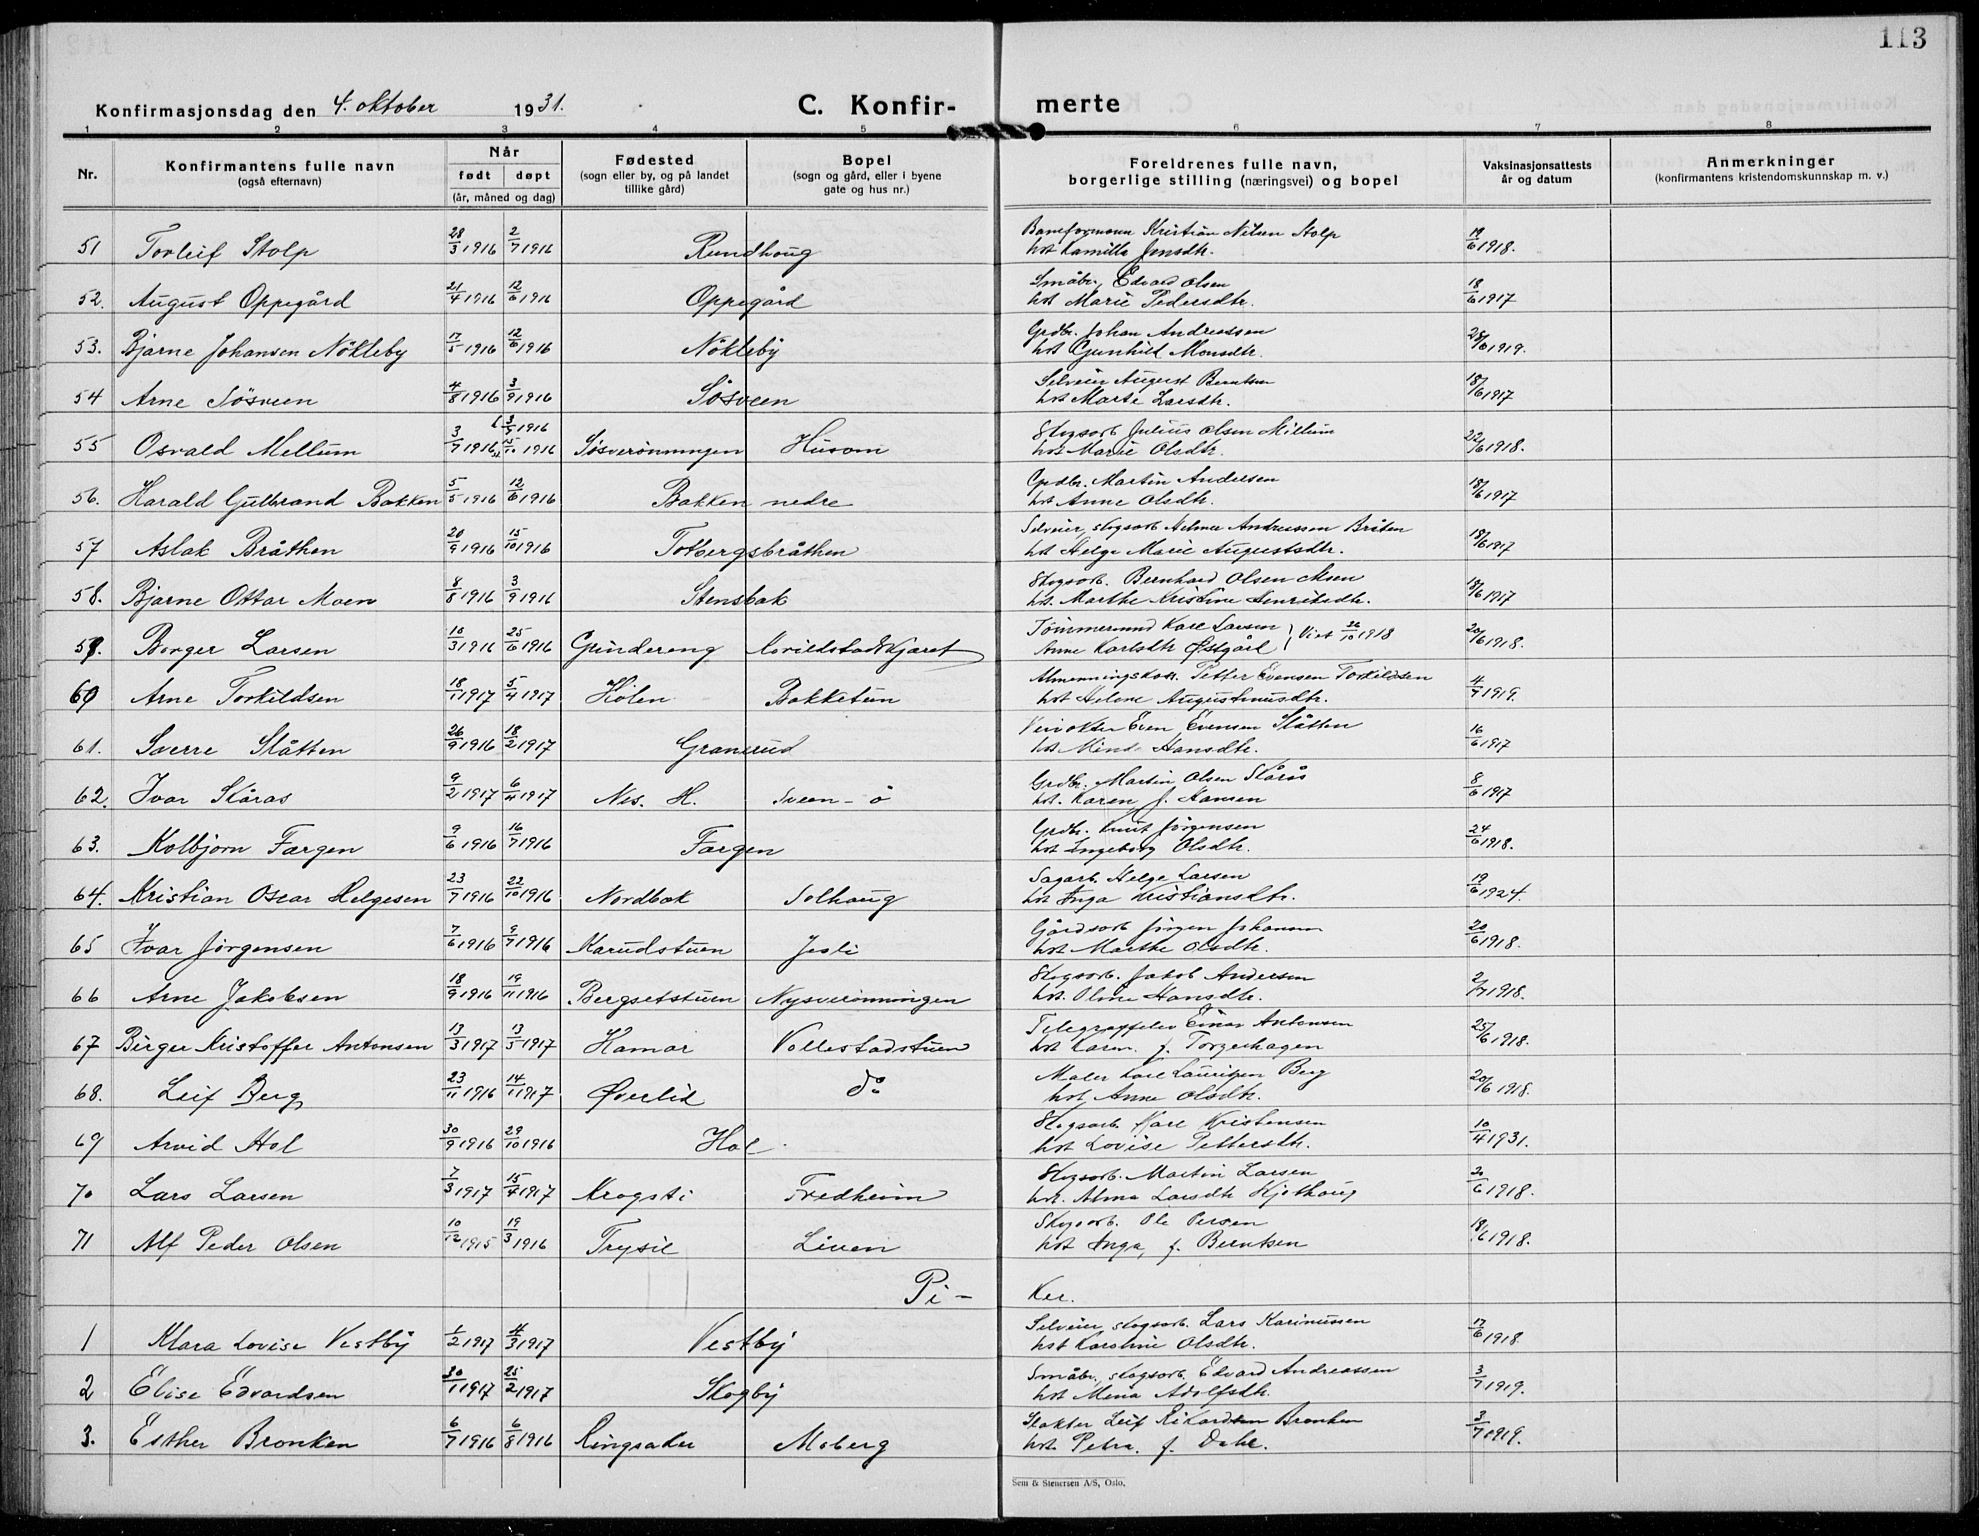 113
Konfirmasjonsdag den 4. oktober 1931.
C. Konfir-
merte
1 2 3 4 5 6 7 8
Nr.
Konfirmantens fulle navn
(også efternavn)
Når
født døpt
(år, måned og dag)
Fødested
(sogn eller by, og på landet
tillike gård)
Bopel
(sogn og gård, eller i byene
gate og hus nr.)
Foreldrenes fulle navn,
borgerlige stilling (næringsvei) og bopel
Vaksinasjonsattests
år og datum
Anmerkninger
(konfirmantens kristendomskunnskap m. v.)
51 Torleif Stolp 28/3 1916 2/7 1916 Rundhoug Baneformann Kristian Nilsen Stolp hst Kamilla Jensdtr. 19/6 1918.
52. August Oppegård 21/4 1916 12/6 1916 Oppegård Småbr. Edvard Olsen hst Marie Pedersdtr. 18/6 1917
53. Bjarne Johansen Nökleby 17/5 1916 12/6 1916 Nökleby Grdbr. Johan Andreassen hst Gunhild Monsdtr. 28/6 1919.
54 Arne Sösveen 4/8 1916 3/9 1916 Sösveen Selveier August Berntsen hst Marte Larsdtr. 18/6 1917
55 Osvald Mellum 3/7 1916 15/10 1916 Sösverönningen Husom Skogsarb. Julius Olsen Millum hst Marie Olsdtr. 22/6 1918.
56. Harald Gulbrand Bakken 5/5 1916 12/6 1916 Bakken nedre Grdbr. Martin Andersen hst Anne Olsdtr. 18/6 1917
57 Aslak Bråthen 20/9 1916 15/10 1916 Totbergsbråthen Selveier, skogsarb. Helmer Andreassen Bråten hst Helga Marie Augustsdtr. 18/6 1917
58. Bjarne Ottar Moen 8/8 1916 3/9 1916 Stensbak Skogsarb. Bernhard Olsen Moen hst. Marthe Kristine Henriksdtr. 18/6 1917
59. Borger Larsen 10/3 1916 25/6 1916 Grindereng Tömmermand Karl Larsen Anne Karlsdtr Østgård } Viet 26/10 1918 20/6 1918.
60 Arne Torkildsen 18/1 1917 5/4 1917 Holen Bakketun Petter Evensen Torkildsen hst Helene Augustinusdtr. 4/7 1919.
61. Sverre Slåtten 26/9 1916 18/2 1917 Granerud Veivokter Even Evensen Slåtten hst Mina Hansdtr. 16/6 1917
62. Ivar Skåras 9/2 1917 6/4 1917 Nes. H. Sveen - ö Grdbr. Martin Olsen Skårås hst. Karen f. Hansen 8/6 1917
63. Kolbjørn Færgen 9/6 1916 16/7 1916 Færgen Grdbr. Knut Jörgensen hst Ingeborg Olsdtr. 24/6 1918.
64. Kristian Oscar Helgesen 23/7 1916 22/10 1916 Nordbak Solhaug Sagarb. Helge Larsen hst Inga Kristiansdtr. 19/6 1924.
65 Ivar Jørgensen 7/6 1916 9/7 1916 Karudstuen Jesli Gårdsarb Jörgen Johansen hst Marthe Olsdtr. 20/6 1918.
66 Arne Jakobsen 18/9 1916 19/11 1916 Bergsetstuen Nysverönningen Skogsarb. Jakob Andersen hst. Oline Hansdtr. 2/7 1918.
67 Birger Kristoffer Antonsen 13/3 1917 13/5 1917 Hamar Vollestadstuen Einar Antonsen hst Karen f. Torgerhagen 25/6 1918.
68. Leif Berg 23/11 1916 14/1 1917 Øverlid do Maler Karl Lauritzen Berg hst Anne Olsdtr. 20/6 1918.
69 Arvid Hol 30/9 1916 29/10 1916 Hol Skogsarb Kare Kristensen hst Lovise Pettersdtr. 10/4 1931.
70 Lars Larsen 7/3 1917 15/4 1917 Krogsti Fredheim Skogsarb. Martin Larsen hst. Alma Larsdtr Hjethaug 20/6 1918.
71 Alf Peder Olsen 10/12 1915 19/3 1916 Trysil Lien Skogsarb. Ole Persen hst Inga, f. Berntsen 18/6 1918.
Pi- ker.
1 Klara Lovise Vestby 1/2 1917 4/3 1917 Vestby Selveier, skogsarb. Lars Karinussen hst Karoline Olsdtr. 17/6 1918.
2 Elise Edvardsen 30/1 1917 25/2 1917 Skogby Småbr, skogsarb. Edvard Andreassen hst Mina Adolfsdtr. 3/7 1919.
3. Esther Bronken 6/7 1916 6/8 1916 Ringsaker Moberg Slakter Leif Rikardsen Bronken hst Petra. f. Dahl. 3/7 1919.
Sem & Stenersen A/S, Oslo.